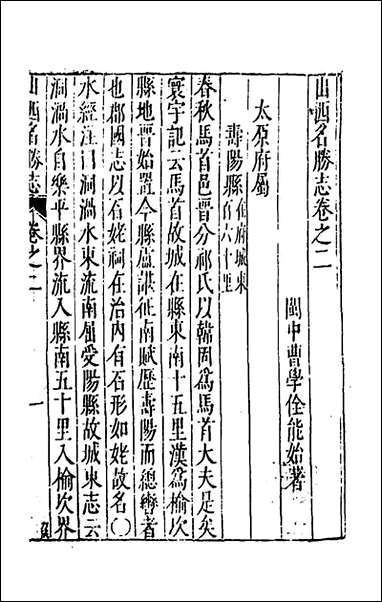 山西名勝志卷之二
閩中曹學佺能始著
太原府屬
壽陽縣在府城東百六十里
春秋馬首邑晋分祁氏以韓固爲馬首大夫是矣
寰宇記云馬首故城在縣東南十五里漢爲榆次
縣地晋始置今縣盧諶征南賦歴壽陽而總轡者
也郡國志以石姥祠在治内有石形如姥故名〇
水經注曰洞渦水東流南屈受陽縣故城東志云
洞渦水自樂平縣界流入縣南五十里入榆次界
山西名勝志 卷之二 一